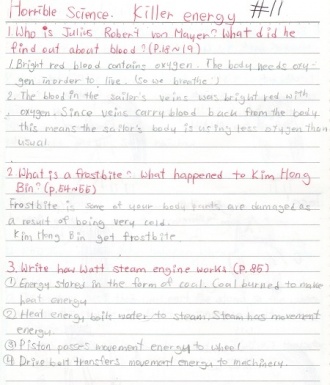 Horrible Science. Killer energy #11
1. Who is Julius Robert von Mayer? What did he
find out about blood? (P.18~19)
1. Bright red blood contains oxygen. The body needs oxy-
gen inorder to live. (So we breathe.)
2. The blood in the sailor's veins was bright red with
oxygen. Since veins carry blood back from the body
this means the sailor's body is using less oxygen than
usual.
2. What is a frostbite? What happened to Kim Hong
Bin? (p.54~55)
Frostbite is some of your body parts are damaged as
a result of being very cold.
Kim Hong Bin get frostbite
3. Write how Watt steam engine works (P.85)
① Energy stored in the form of coal. Coal burned to make
heat energy
② Heat energy boils water to steam. Steam has movement
energy.
③ Piston passes movement energy to wheel
④ Drive belt transfers movement energy to machinery.